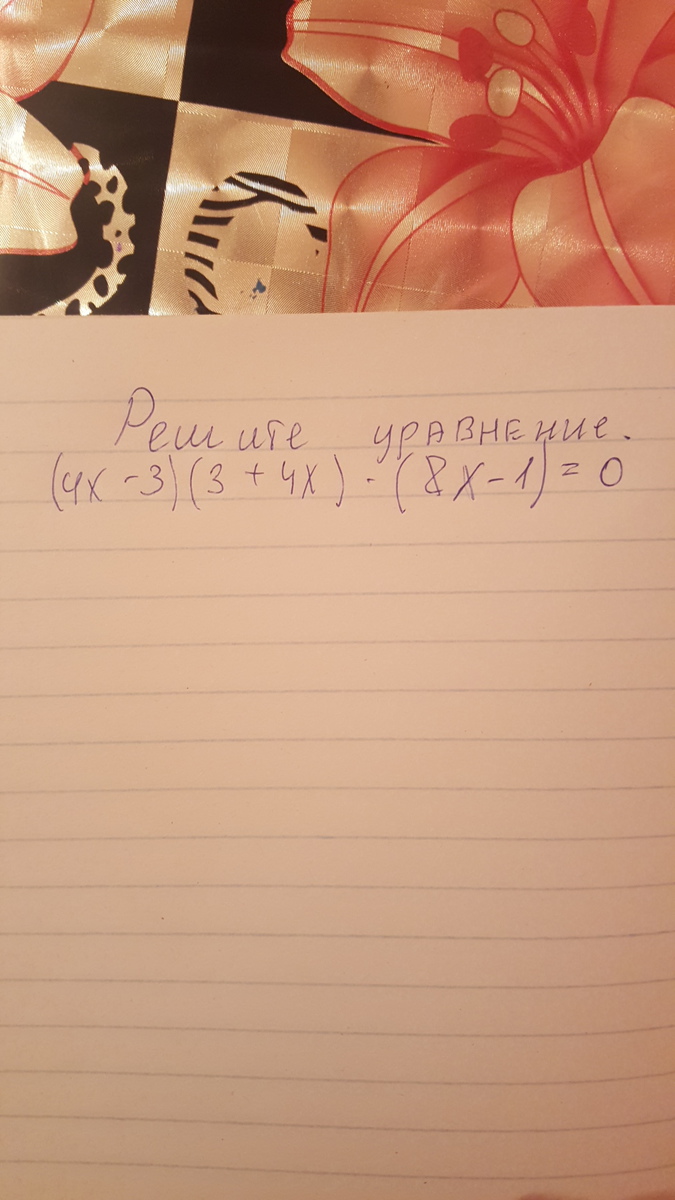 Решите уравнение.
(4x - 3)(3 + 4x) · (8x - 1) = 0